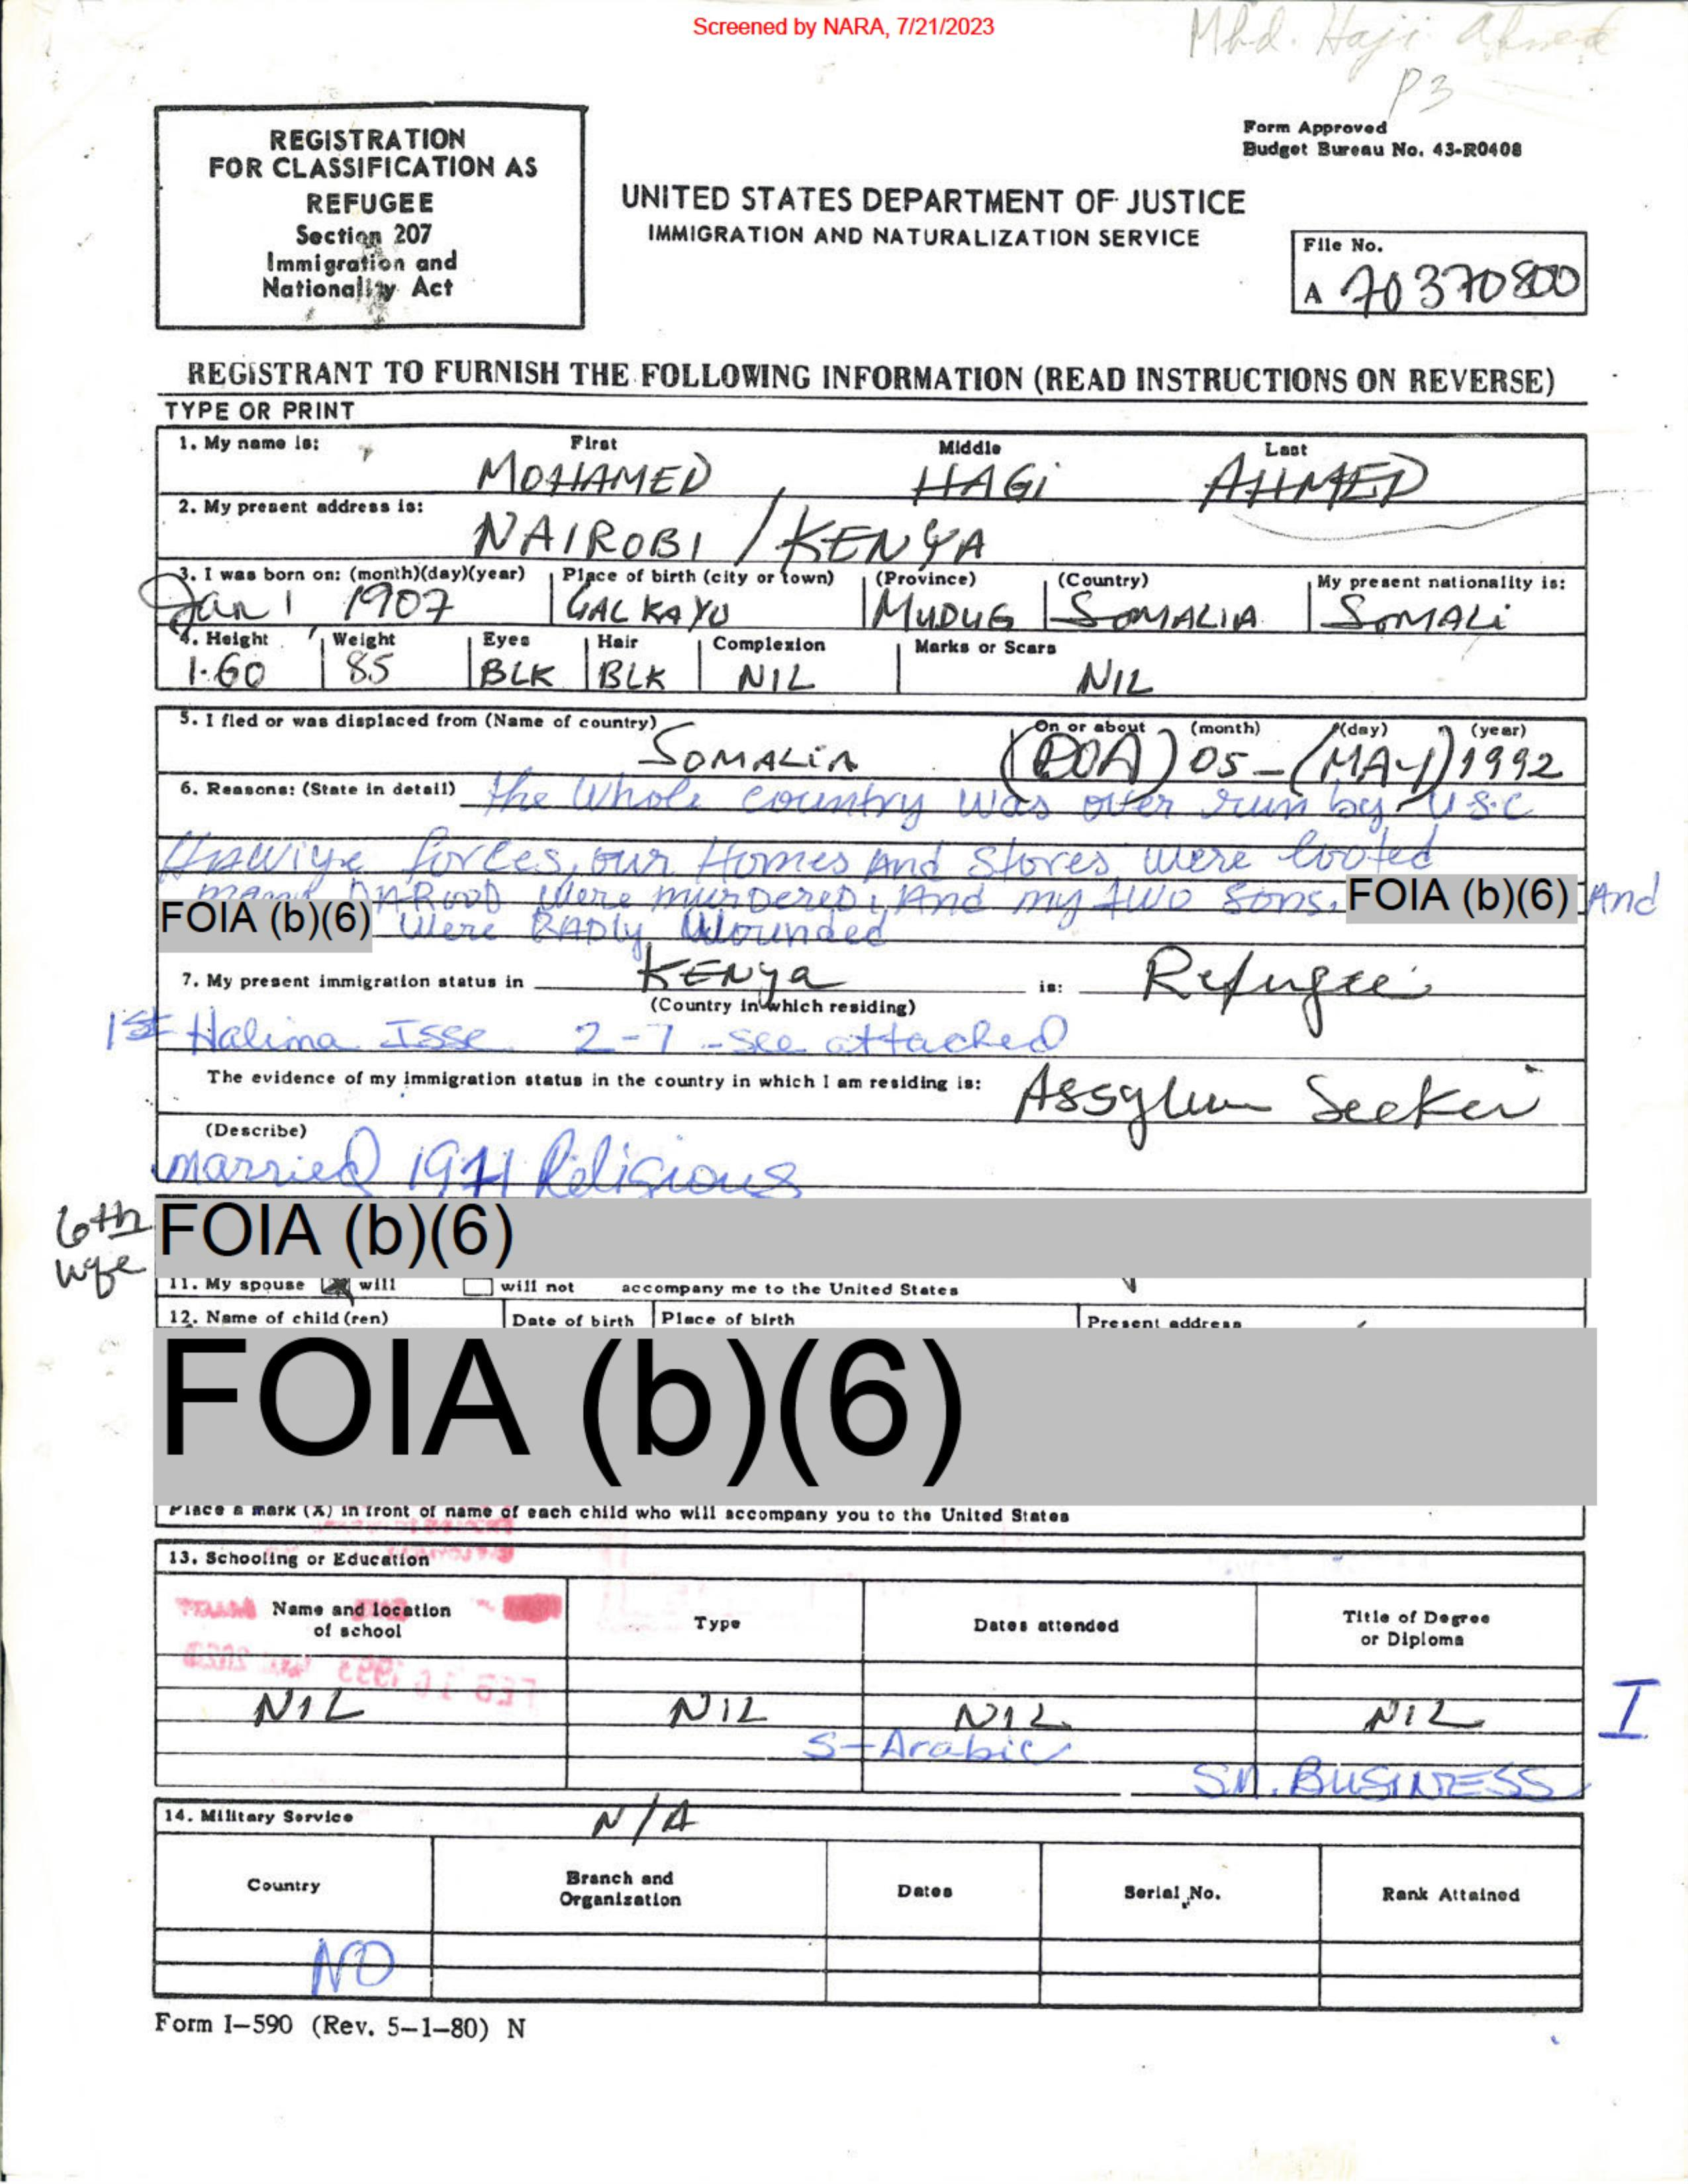 Screened by NARA, 7/21/2023
Mhd. Haji Ahmed
P3
REGISTRATION
FOR CLASSIFICATION AS
REFUGEE
Section 207
Immigration and
Nationality Act
Form Approved
Budget Bureau No. 43-R0408
UNITED STATES DEPARTMENT OF JUSTICE
IMMIGRATION AND NATURALIZATION SERVICE
File No.
A 70370800
REGISTRANT TO FURNISH THE FOLLOWING INFORMATION (READ INSTRUCTIONS ON REVERSE)
TYPE OR PRINT
1. My name is: First Middle Last
MOHAMED HAGi AHMED
2. My present address is:
NAIROBI / KENYA
3. I was born on: (month)(day)(year) Place of birth (city or town) (Province) (Country) My present nationality is:
Jan 1 1907 GALKAYU MUDUG SOMALIA SOMALi
4. Height Weight Eyes Hair Complexion Marks or Scars
1.60 85 BLK BLK NIL NIL
5. I fled or was displaced from (Name of country) On or about (month) (day) (year)
SOMALIA (DOA) 05-(MAY) 1992
6. Reasons: (State in detail) the whole country was over run by U.S.C
Hawiye forces, our Homes And Stores were looted
many DAROOD were murdered, And my two sons. FOIA (b)(6) And
FOIA (b)(6) were BADly Wounded
7. My present immigration status in KENya is: Refugee
(Country in which residing)
1st Halima Isse 2-7 -see attached
The evidence of my immigration status in the country in which I am residing is: Assylum Seeker
(Describe)
married 1941 Religious
6th wife
FOIA (b)(6)
11. My spouse will will not accompany me to the United States
12. Name of child (ren) Date of birth Place of birth Present address
FOIA (b)(6)
Place a mark (X) in front of name of each child who will accompany you to the United States
13. Schooling or Education
Name and location of school Type Dates attended Title of Degree or Diploma
FEB 16 1993
NIL NIL NIL NIL
I
S-Arabic
Sm. BUSINESS
14. Military Service N/A
Country Branch and Organization Dates Serial No. Rank Attained
NO
Form I-590 (Rev. 5-1-80) N